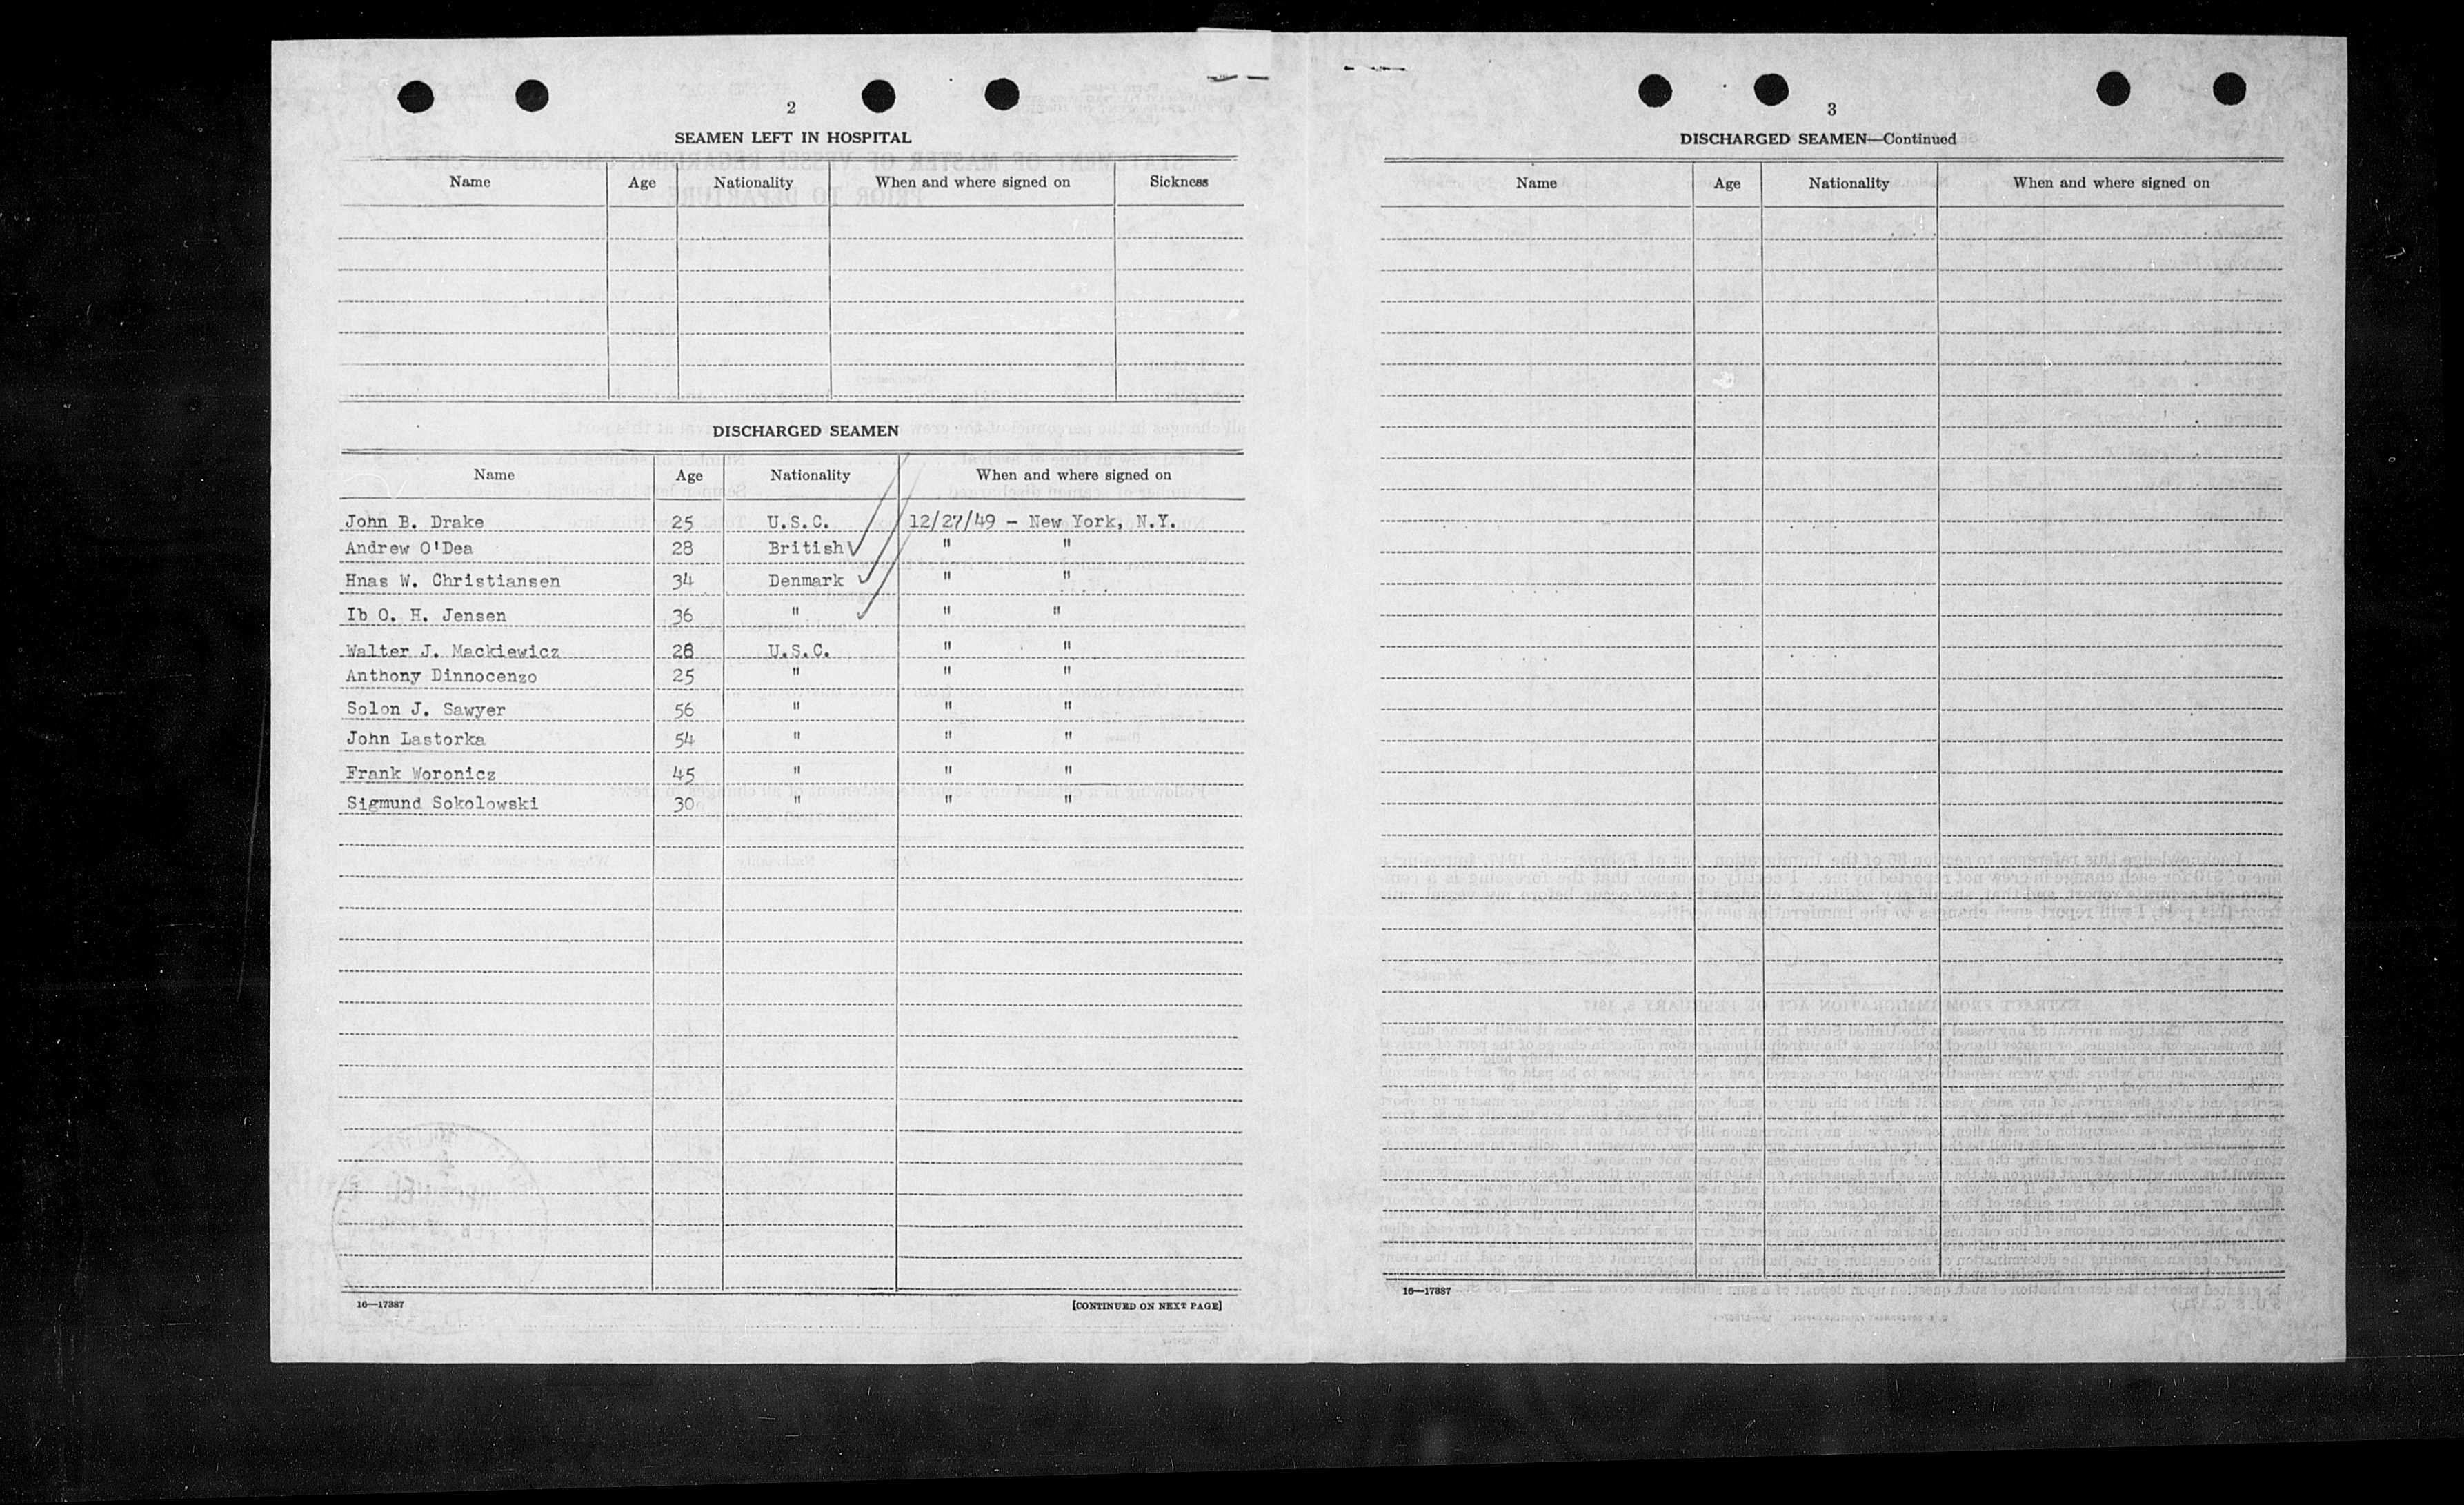 2
SEAMEN LEFT IN HOSPITAL
Name Age Nationality When and where signed on Sickness
DISCHARGED SEAMEN
Name Age Nationality When and where signed on
John B. Drake 25 U.S.C. 12/27/49 - New York, N.Y.
Andrew O'Dea 28 British " "
Hnas W. Christiansen 34 Denmark " "
Ib O. H. Jensen 36 " " "
Walter J. Mackiewicz 28 U.S.C. " "
Anthony Dinnocenzo 25 " " "
Solon J. Sawyer 56 " " "
John Lastorka 54 " " "
Frank Woronicz 45 " " "
Sigmund Sokolowski 30 " " "
16—17387 [CONTINUED ON NEXT PAGE]
3
DISCHARGED SEAMEN—Continued
Name Age Nationality When and where signed on
16—17387